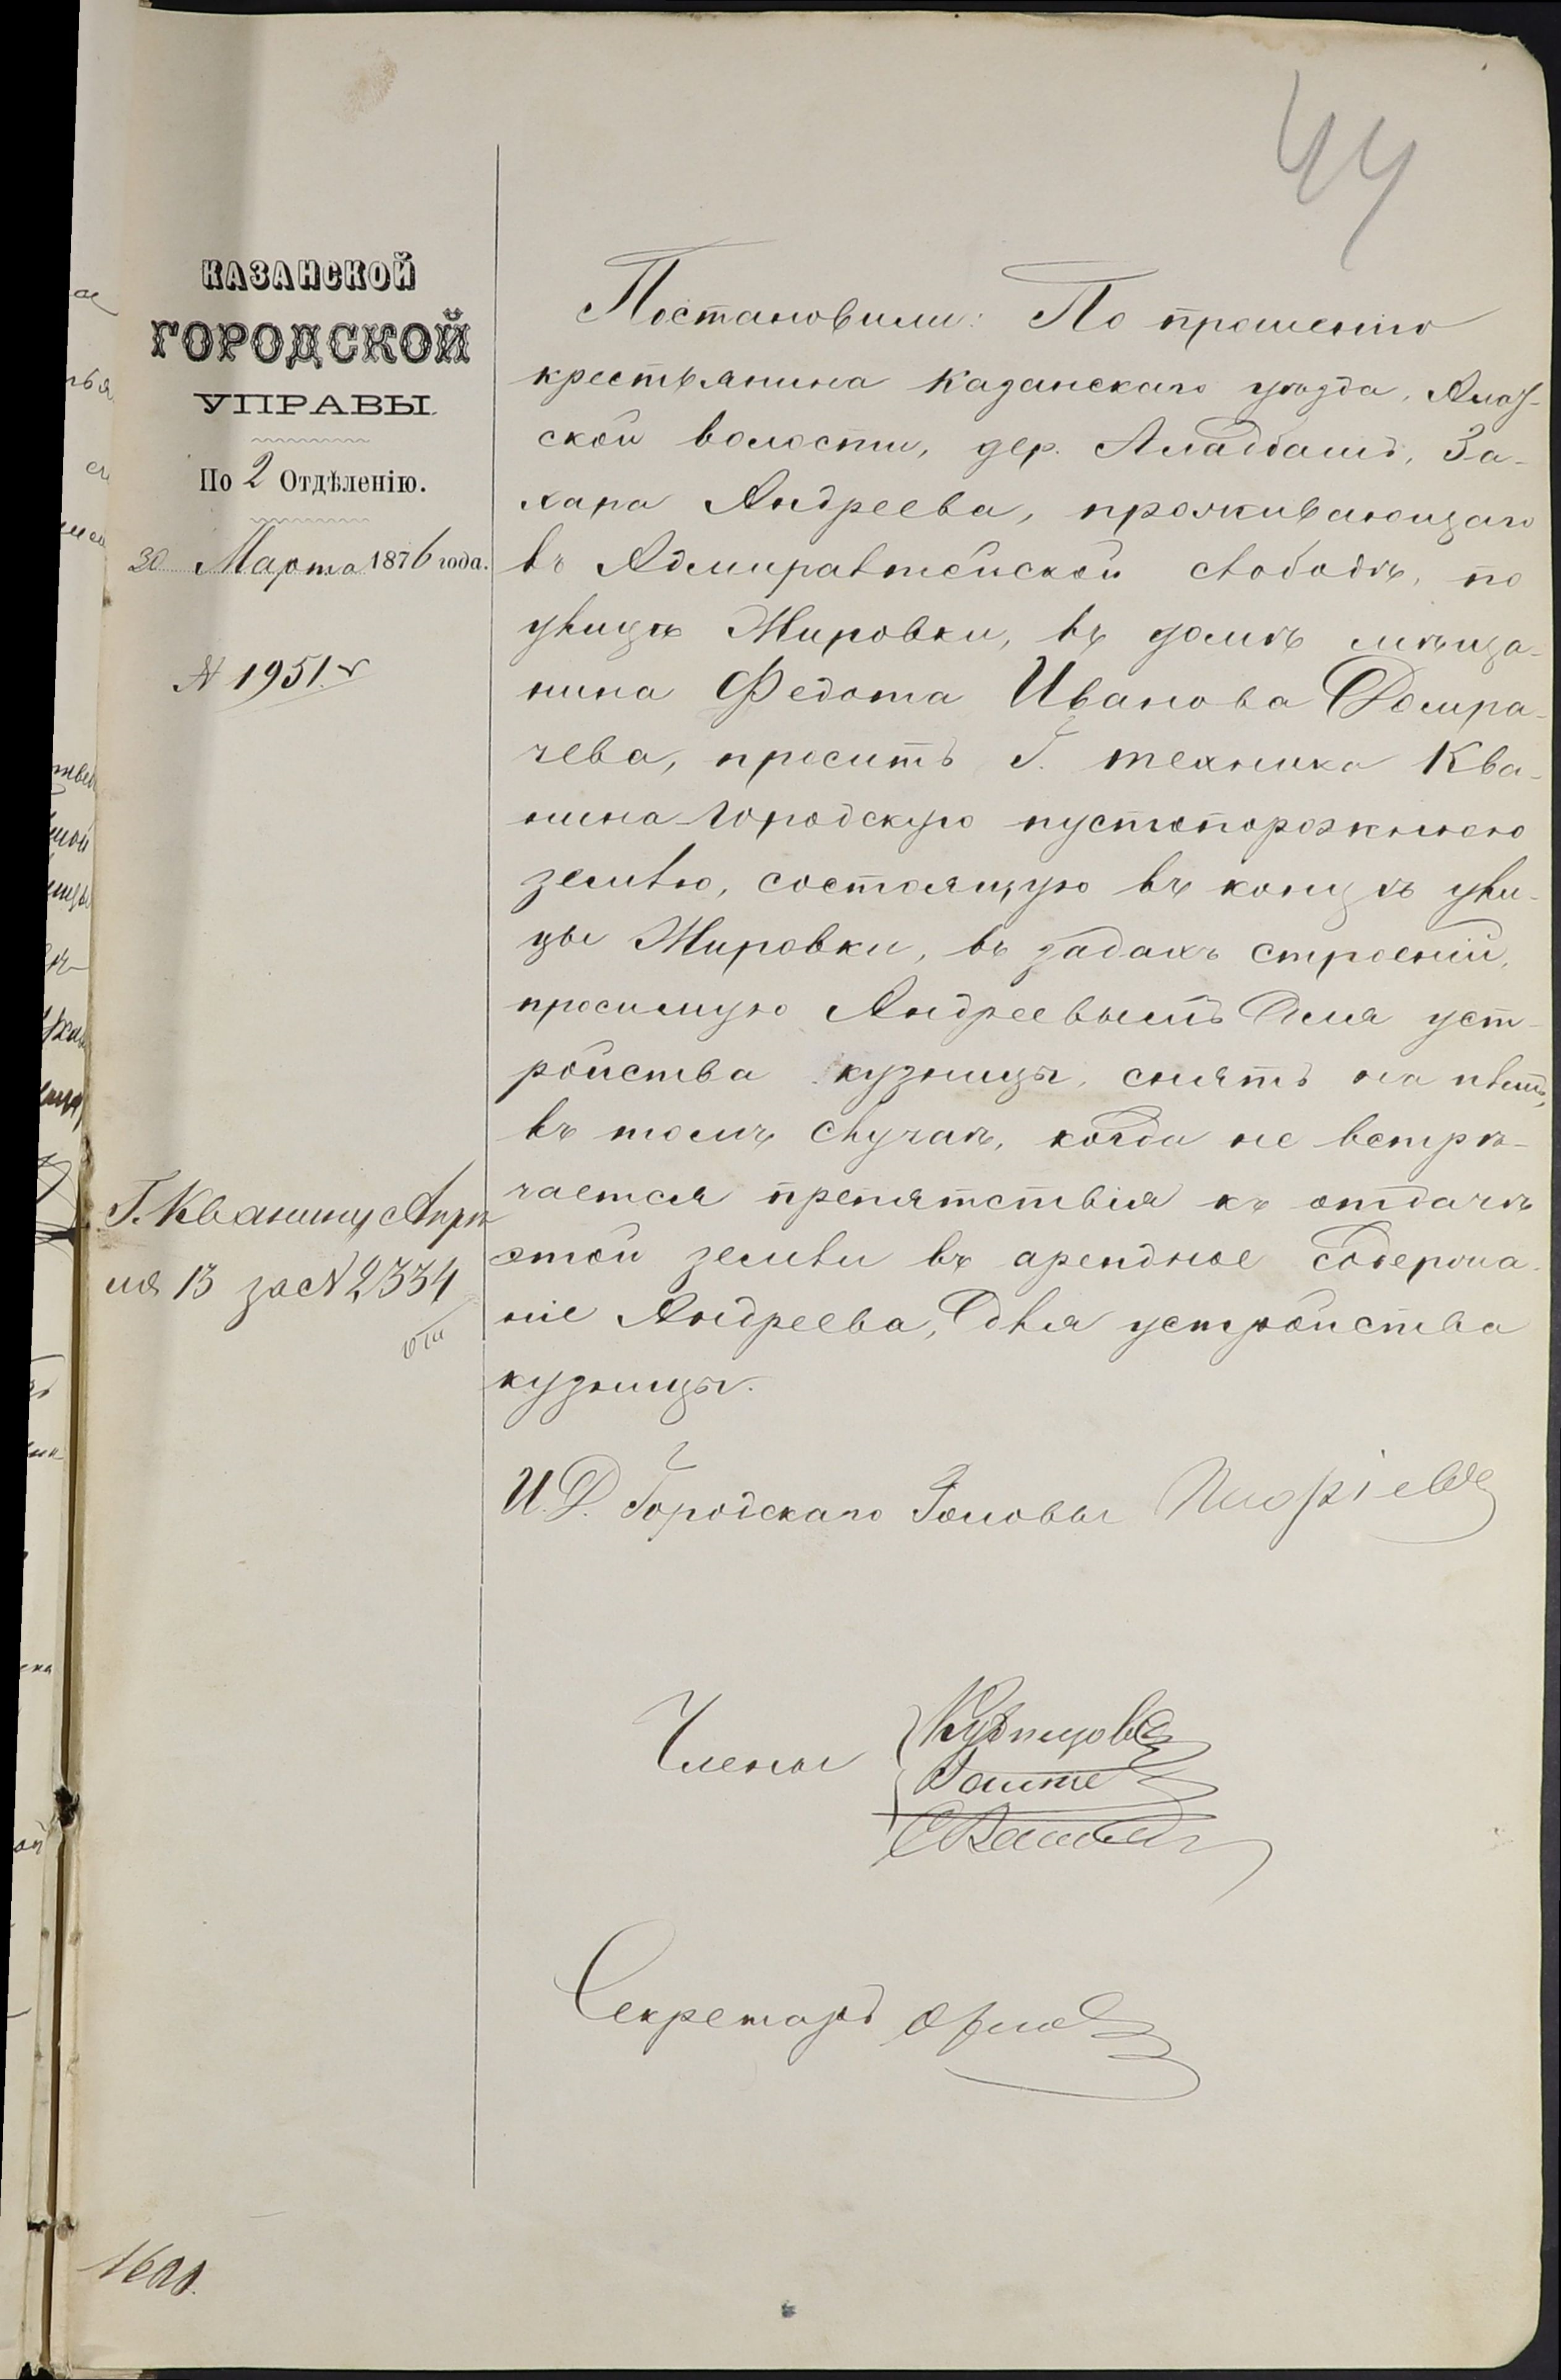 44
КАЗАНСКОЙ
ГОРОДСКОЙ
УПРАВЫ
По 2 Отдѣленію.
30 Марта 1876 года.
№ 1951.
Г. Кванину Апрѣ
ля 13 за № 2334
Постановили: По прошенію
крестьянина Казанскаго уѣзда,
ской волости, дер. За-
хара Андреева, проживающаго
въ Адмиралтейской слободѣ, по
улицѣ Мировки, въ домѣ мѣща-
нина Федота Иванова Домра-
чева, просить Г. техника Ква-
нина городскую пустопорожнюю
землю, состоящую въ концѣ ули-
цы Мировки, въ задахъ строеній,
просимую Андреевымъ для уст-
ройства кузницы, снять на планъ,
въ томъ случаѣ, когда не встрѣ-
чается препятствія къ отдачѣ
этой земли въ арендное содержа-
ніе Андреева, для устройства
кузницы.
И.Д. Городскаго Головы
Члены Кузнецовъ
Секретарь Орлов